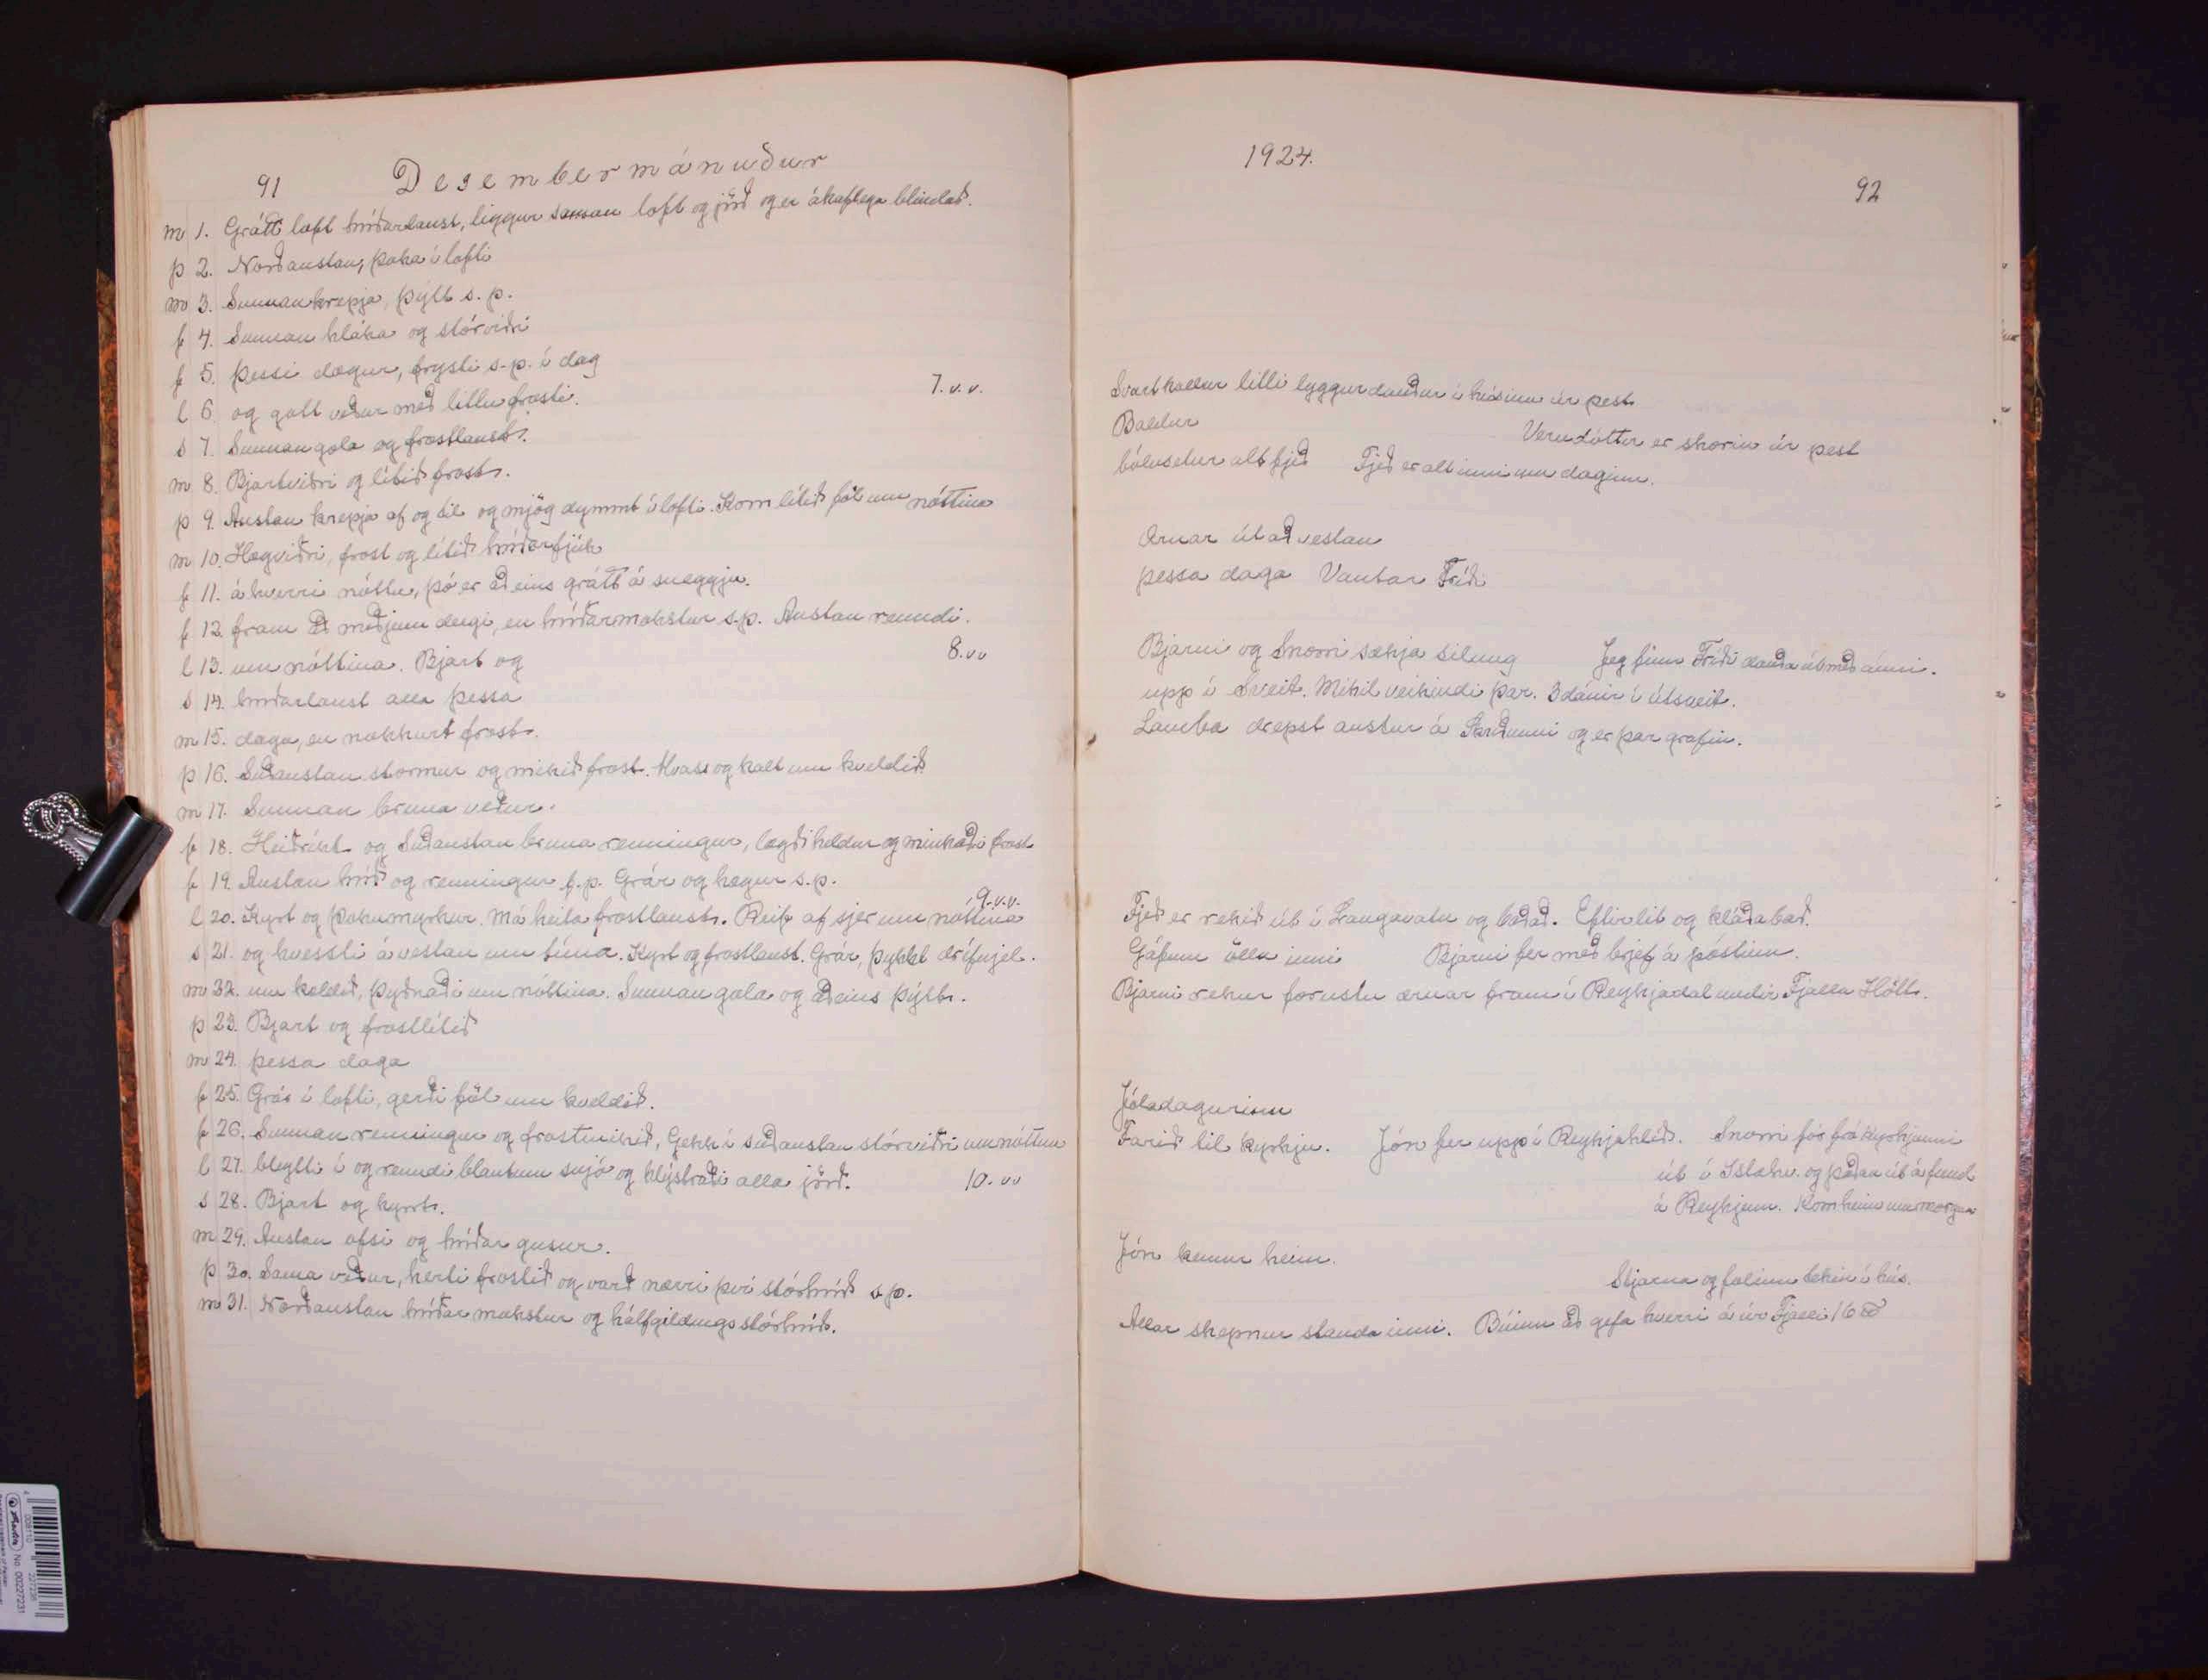 91 Desembermánuður
m 1. Grátt loft hríðarlaust, liggur saman loft og jörð og er ákaflega blindað.
þ 2. Norðaustan, þoka í lofti
m 3. Sunnan krepja, þýtt s.p.
f 4. Sunnan hláka og stórviðri
f 5. þessi dægur, frysti s.p. í dag
l 6. og gott veður með litlu frosti. 7. v.v.
s 7. Sunnan gola og frostlaust.
m 8. Bjartviðri og lítið frost.
þ 9. Austan krepja af og til og mjög dymmt í lofti. Kom lítið föl um nóttina
m 10. Hægviðri, frost og lítið hríðarfjúk
f 11. á hverri nóttu, þó er aðeins grátt á sneggju.
f 12. fram að miðjum degi, en hríðarmokstur s.p. Austan renndi.
l 13. um nóttina. Bjart og 8. vv
s 14. hríðarlaust alla þessa
m 15. daga, en nokkurt frost.
þ 16. Suðaustan stormur og mikið frost. Hvass og kalt um kveldið
m 17. Sunnan bruna veður.
f 18. Heiðríkt og Suðaustan bruna renningur, lægði heldur og minkaði frost
f 19. Austan hríð og renningur f.p. Grár og hægur s.p.
l 20. Kyrt og þokumyrkur. Má heita frostlaust. Reif af sjer um nóttina 9. v.v.
s 21. og hvessti á vestan um tíma. Kyrt og frostlaust. Grár, þykkt drífujel.
m 32. um kveldið, þyðnaði um nóttina. Sunnan gola og aðeins þýtt.
þ 23. Bjart og frostlítið
m 24. þessa daga
f 25. Grár í lofti, gerði föl um kveldið.
f 26. Sunnan renningur og frostmikið, Gekk í suðaustan stórviðri um nóttina
l 27. bleytti í og renndi blautum snjó og klýstraði alla jörð. 10. vv
s 28. Bjart og kyrrt.
m 29. Austan ofsi og hríðar gusur.
þ 30. Sama veður, herti frostið og varð nærri því stórhríð s.p.
m 31. Norðaustan hríðar mokstur og hálfgildings stórhríð.
1924.
92
Svarthöllur litli lyggur dauður í húsinu úr pest
Baldur Verudóttir er skorin úr pest
bólusetur alt fjeð Fjeð er alt inni um daginn.
Ærnar út að vestan
þessa daga Vantar Fríði
Bjarni og Snorri sækja silung Jeg finn Fríði dauða út með ánni.
upp í Sveit. Mikil veikindi þar. 3 dánir í útsveit.
Lamba drepst austur á Skrðunni og er þar grafin.
Fjeð er rekið út í Langavatn og baðað. Eftirlit og kláðabað.
Gáfum öllu inni Bjarni fer með brjef á póstinn.
Bjarni rekur forustu ærnar fram í Reykjadal undir Fjalla Hölt.
Jóladagurinn
Farið til kyrkju. Jón fer upp í Reykjahlíð. Snorri fór frá kyrkjunni
út í Ístahv. og þaðan út á fund
á Reykjum. Kom heim um morgun
Jón kemur heim.
Stjarna og folinn tekin í hús.
Allar skepnur standa inni. Búinn að gefa hverri á úr Fjalli 16 ℔